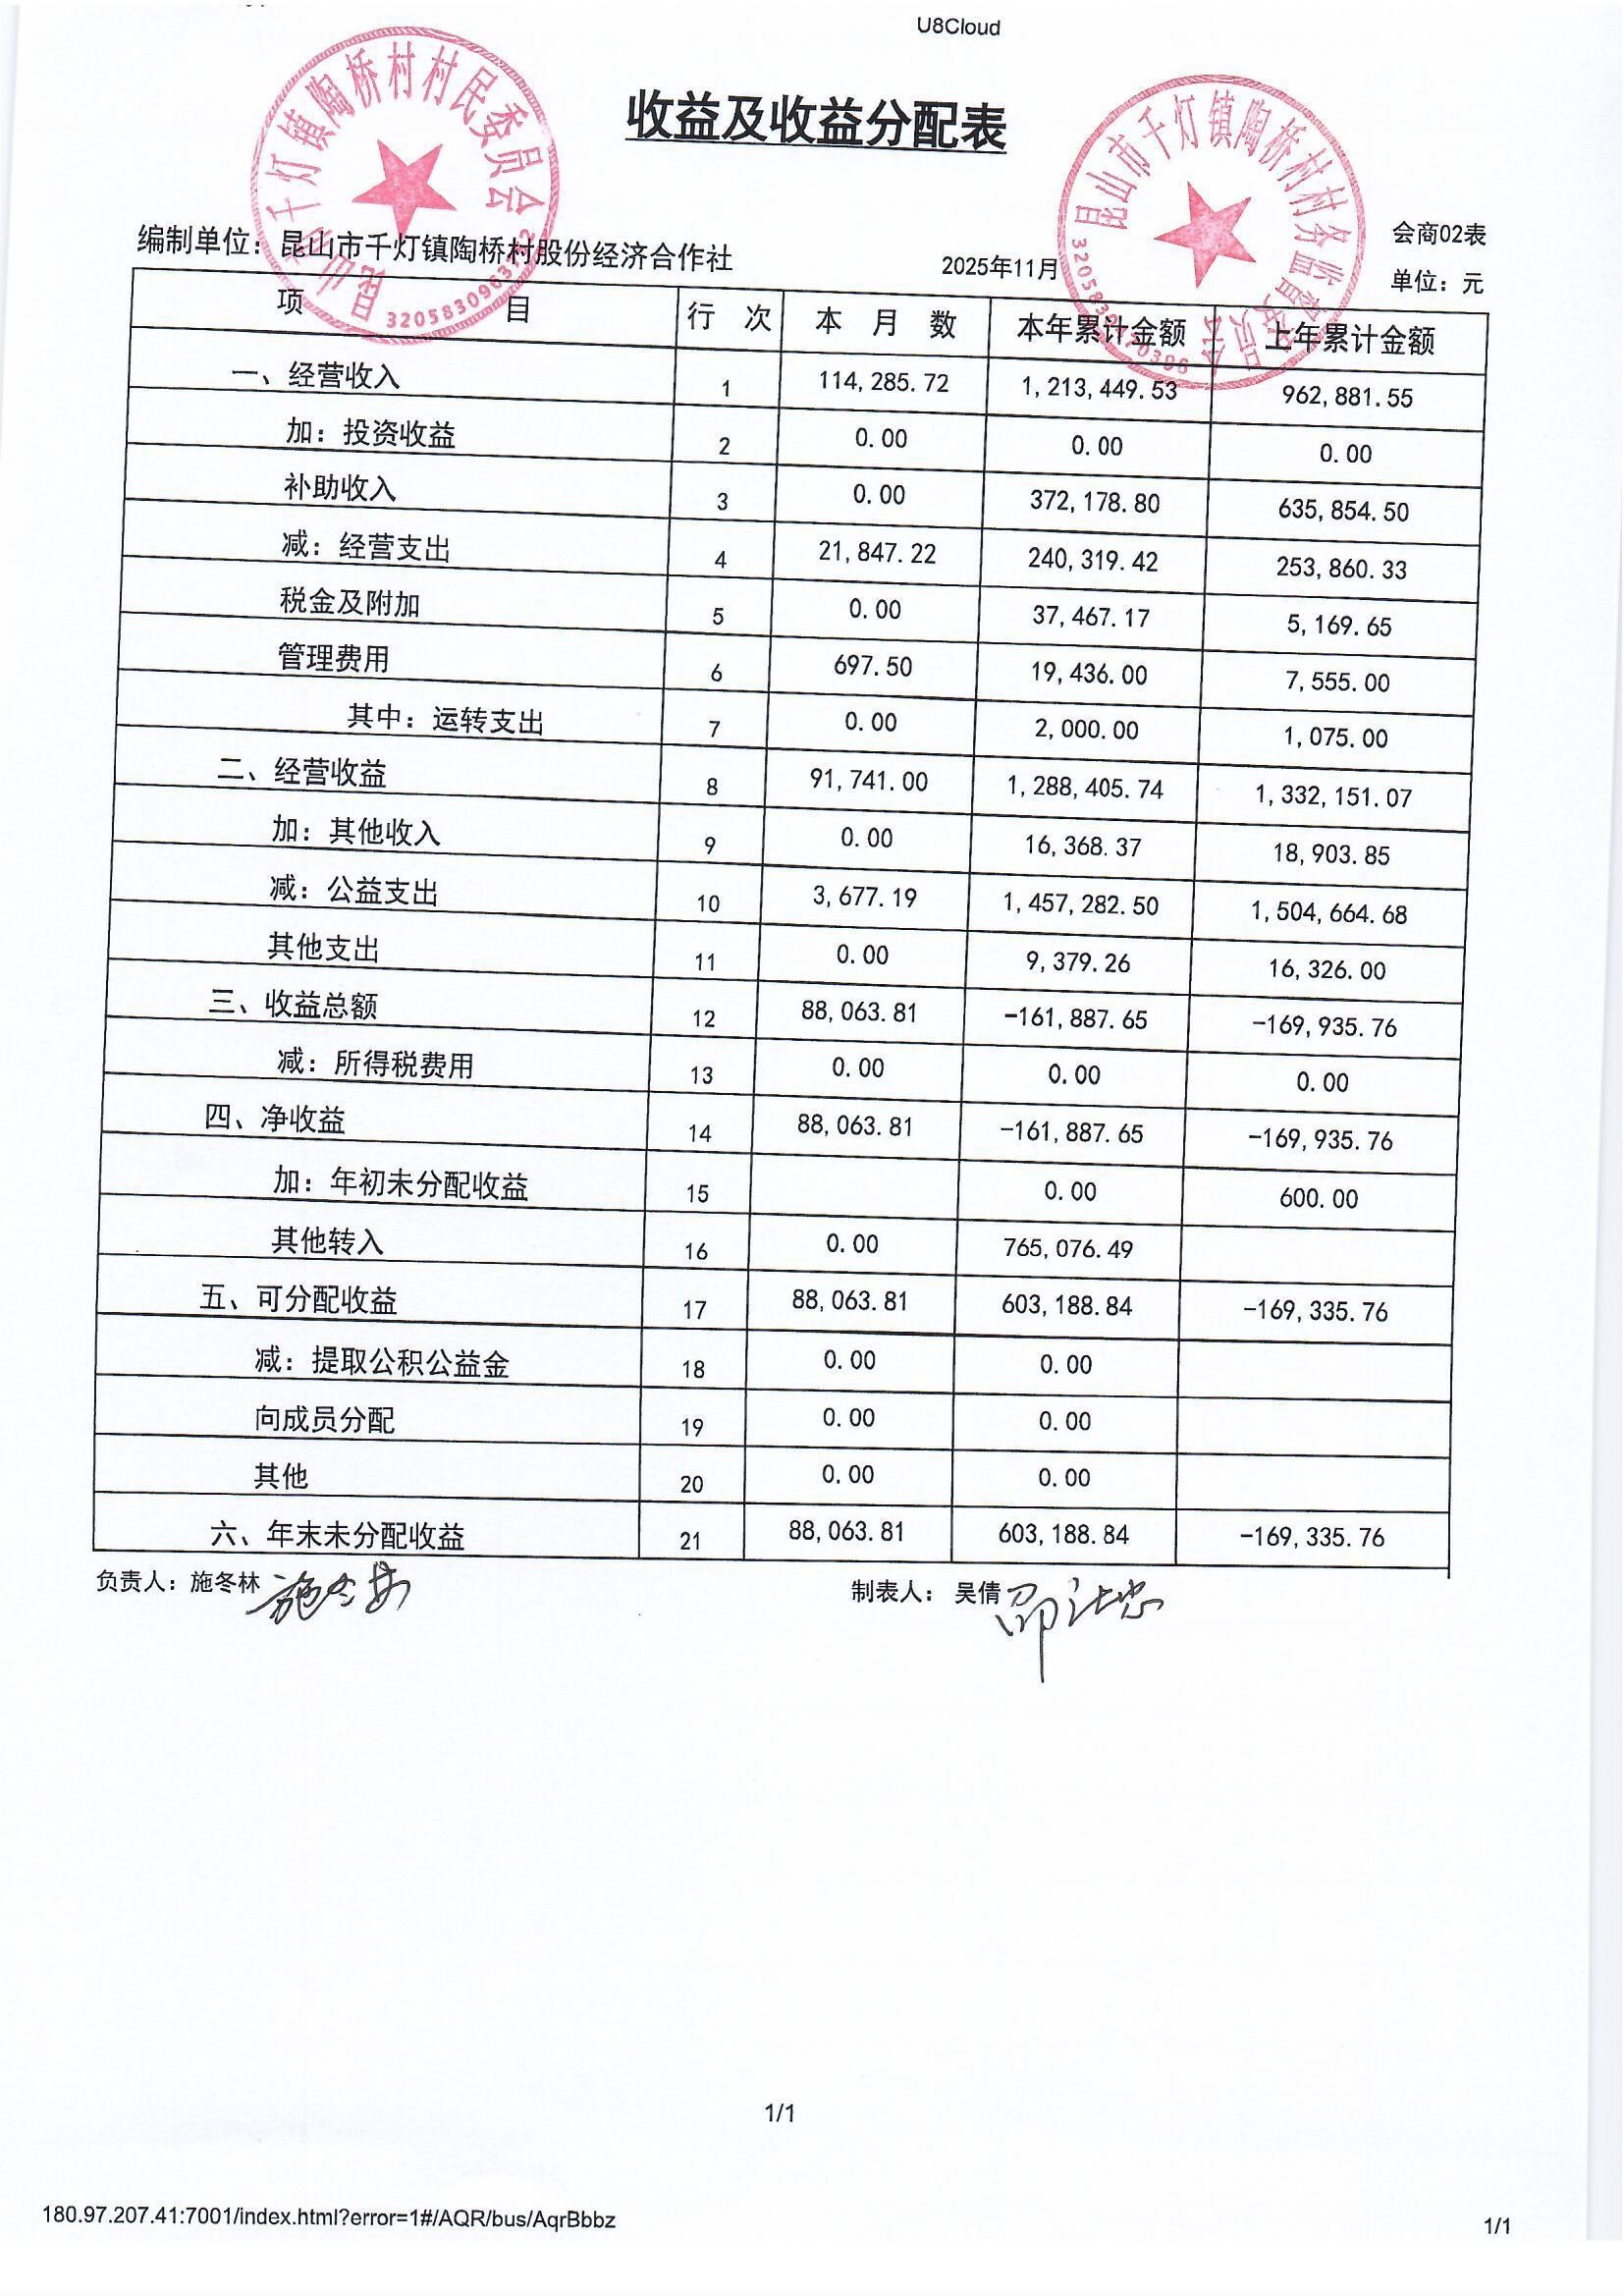 U8Cloud
收益及收益分配表
千灯镇陶桥村村民委员会
昆山市千灯镇陶桥村村务监督委员会
会商02表
编制单位：昆山市千灯镇陶桥村股份经济合作社 2025年11月 单位：元
项 目 行 次 本 月 数 本年累计金额 上年累计金额
一、经营收入 1 114,285.72 1,213,449.53 962,881.55
加：投资收益 2 0.00 0.00 0.00
补助收入 3 0.00 372,178.80 635,854.50
减：经营支出 4 21,847.22 240,319.42 253,860.33
税金及附加 5 0.00 37,467.17 5,169.65
管理费用 6 697.50 19,436.00 7,555.00
其中：运转支出 7 0.00 2,000.00 1,075.00
二、经营收益 8 91,741.00 1,288,405.74 1,332,151.07
加：其他收入 9 0.00 16,368.37 18,903.85
减：公益支出 10 3,677.19 1,457,282.50 1,504,664.68
其他支出 11 0.00 9,379.26 16,326.00
三、收益总额 12 88,063.81 -161,887.65 -169,935.76
减：所得税费用 13 0.00 0.00 0.00
四、净收益 14 88,063.81 -161,887.65 -169,935.76
加：年初未分配收益 15 0.00 600.00
其他转入 16 0.00 765,076.49
五、可分配收益 17 88,063.81 603,188.84 -169,335.76
减：提取公积公益金 18 0.00 0.00
向成员分配 19 0.00 0.00
其他 20 0.00 0.00
六、年末未分配收益 21 88,063.81 603,188.84 -169,335.76
负责人：施冬林 制表人： 吴倩
1/1
180.97.207.41:7001/index.html?error=1#/AQR/bus/AqrBbbz 1/1